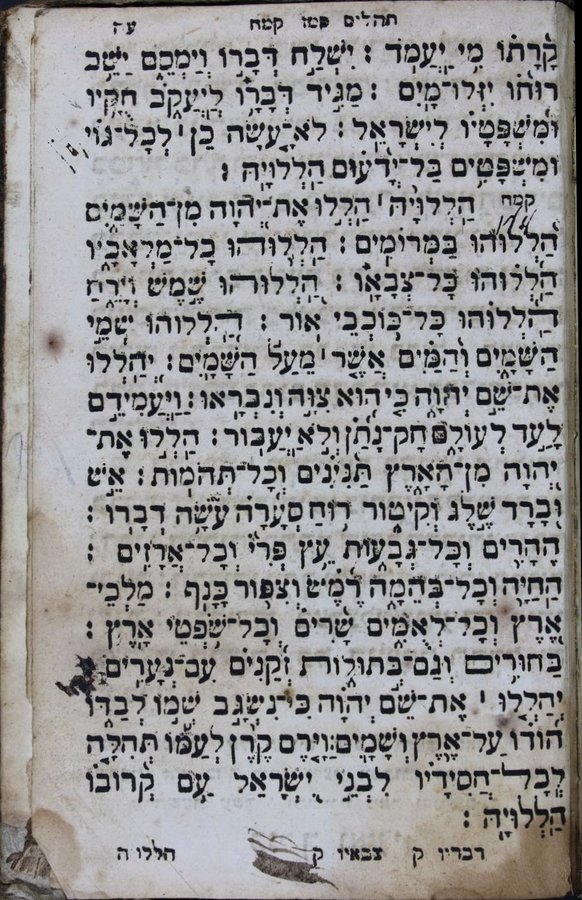 תהלים קמז קמח עה
קָרָתוֹ מִי יַעֲמֹד : יִשְׁלַח דְּבָרוֹ וְיַמְסֵם יַשֵּׁב
רוּחוֹ יִזְּלוּ־מָיִם : מַגִּיד דְּבָרָו לְיַעֲקֹב חֻקָּיו
וּמִשְׁפָּטָיו לְיִשְׂרָאֵל : לֹא־עָשָׂה כֵן ׀ לְכָל־גּוֹי
וּמִשְׁפָּטִים בַּל־יְדָעוּם הַלְלוּיָהּ :
קמח הַלְלוּיָהּ ׀ הַלְלוּ אֶת־יְהוָה מִן־הַשָּׁמַיִם
הַלְלוּהוּ בַּמְּרוֹמִים : הַלְלוּהוּ כָל־מַלְאָכָיו
הַלְלוּהוּ כָּל־צְבָאָו : הַלְלוּהוּ שֶׁמֶשׁ וְיָרֵחַ
הַלְלוּהוּ כָּל־כּוֹכְבֵי אוֹר : הַלְלוּהוּ שְׁמֵי
הַשָּׁמָיִם וְהַמַּיִם אֲשֶׁר ׀ מֵעַל הַשָּׁמָיִם : יְהַלְלוּ
אֶת־שֵׁם יְהוָה כִּי הוּא צִוָּה וְנִבְרָאוּ : וַיַּעֲמִידֵם
לָעַד לְעוֹלָם חָק־נָתַן וְלֹא יַעֲבוֹר : הַלְלוּ אֶת־
יְהוָה מִן־הָאָרֶץ תַּנִּינִים וְכָל־תְּהֹמוֹת : אֵשׁ
וּבָרָד שֶׁלֶג וְקִיטוֹר רוּחַ סְעָרָה עֹשָׂה דְבָרוֹ :
הֶהָרִים וְכָל־גְּבָעוֹת עֵץ פְּרִי וְכָל־אֲרָזִים :
הַחַיָּה וְכָל־בְּהֵמָה רֶמֶשׂ וְצִפּוֹר כָּנָף : מַלְכֵי־
אֶרֶץ וְכָל־לְאֻמִּים שָׂרִים וְכָל־שֹׁפְטֵי אָרֶץ :
בַּחוּרִים וְגַם־בְּתוּלוֹת זְקֵנִים עִם־נְעָרִים :
יְהַלְלוּ ׀ אֶת־שֵׁם יְהוָה כִּי־נִשְׂגָּב שְׁמוֹ לְבַדּוֹ
הוֹדוֹ עַל־אֶרֶץ וְשָׁמָיִם : וַיָּרֶם קֶרֶן לְעַמּוֹ תְּהִלָּה
לְכָל־חֲסִידָיו לִבְנֵי יִשְׂרָאֵל עַם קְרוֹבוֹ
הַלְלוּיָהּ :
דבריו ק צבאיו ק הללו ה